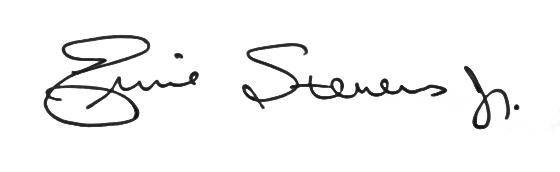 Ernie Stevens Jr.